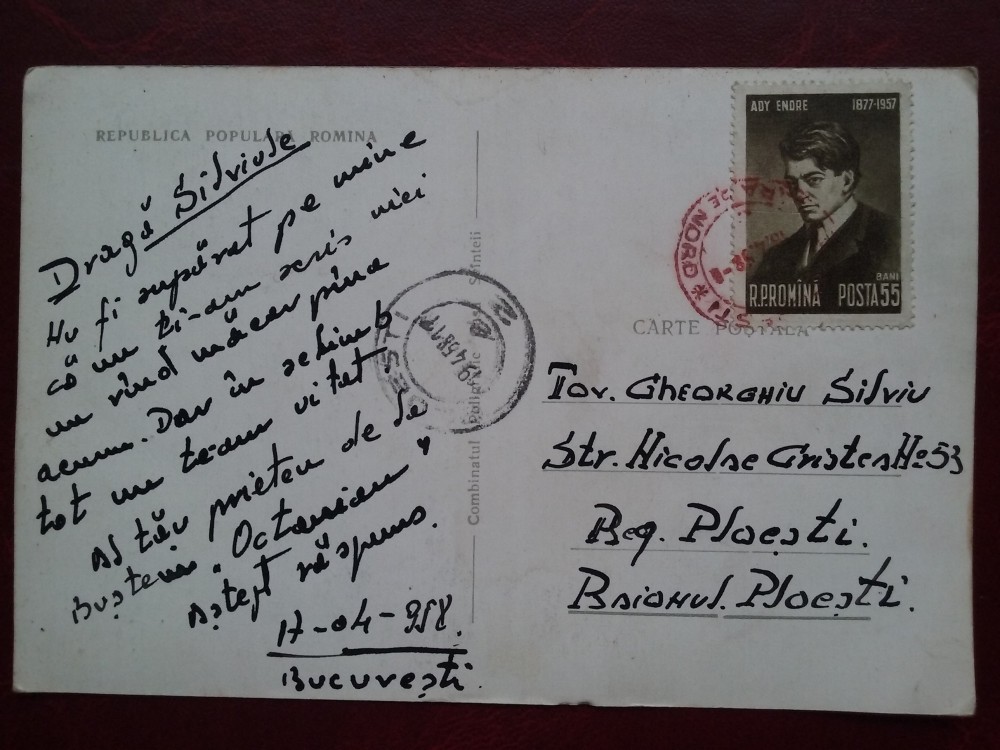 REPUBLICA POPULARA ROMINA
Dragă Silviule
Nu fi supărat pe mine
că nu ți-am scris nici
un rînd măcar pîna
acum. Dar în schimb
tot nu team uitat
Al tău prieten de la
Bușteni "Octavian"
Aștept răspuns.
17-04-958.
București.
Combinatul Poligrafic Scînteii
ADY ENDRE 1877-1957
BANI
R.P.ROMÎNĂ POSTA 55
GARA DE NORD
CARTE POȘTALĂ
Tov. GHEORGHIU Silviu
Str. Nicolae Cristea No 53
Reg. Ploești.
Raionul. Ploești.